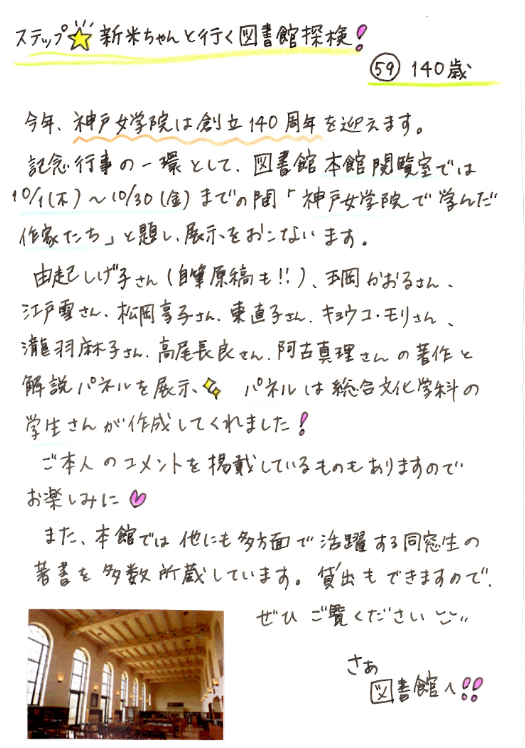 ステップ☆新米ちゃんと行く図書館探検!
59 140歳
今年、神戸女学院は創立140周年を迎えます。
記念行事の一環として、図書館本館閲覧室では
10/1(木)～10/30(金)までの間「神戸女学院で学んだ
作家たち」と題し、展示をおこないます。
由起しげ子さん(自筆原稿も!!)、玉岡かおるさん、
江戸雪さん、松岡享子さん、東直子さん、キョウコ・モリさん、
瀧羽麻子さん、高尾長良さん、阿古真理さんの著作と
解説パネルを展示 パネルは総合文化学科の
学生さんが作成してくれました!
ご本人のコメントを掲載しているものもありますので
お楽しみに♥
また、本館では他にも多方面で活躍する同窓生の
著書を多数所蔵しています。貸出もできますので、
ぜひご覧ください
さあ
図書館へ!!